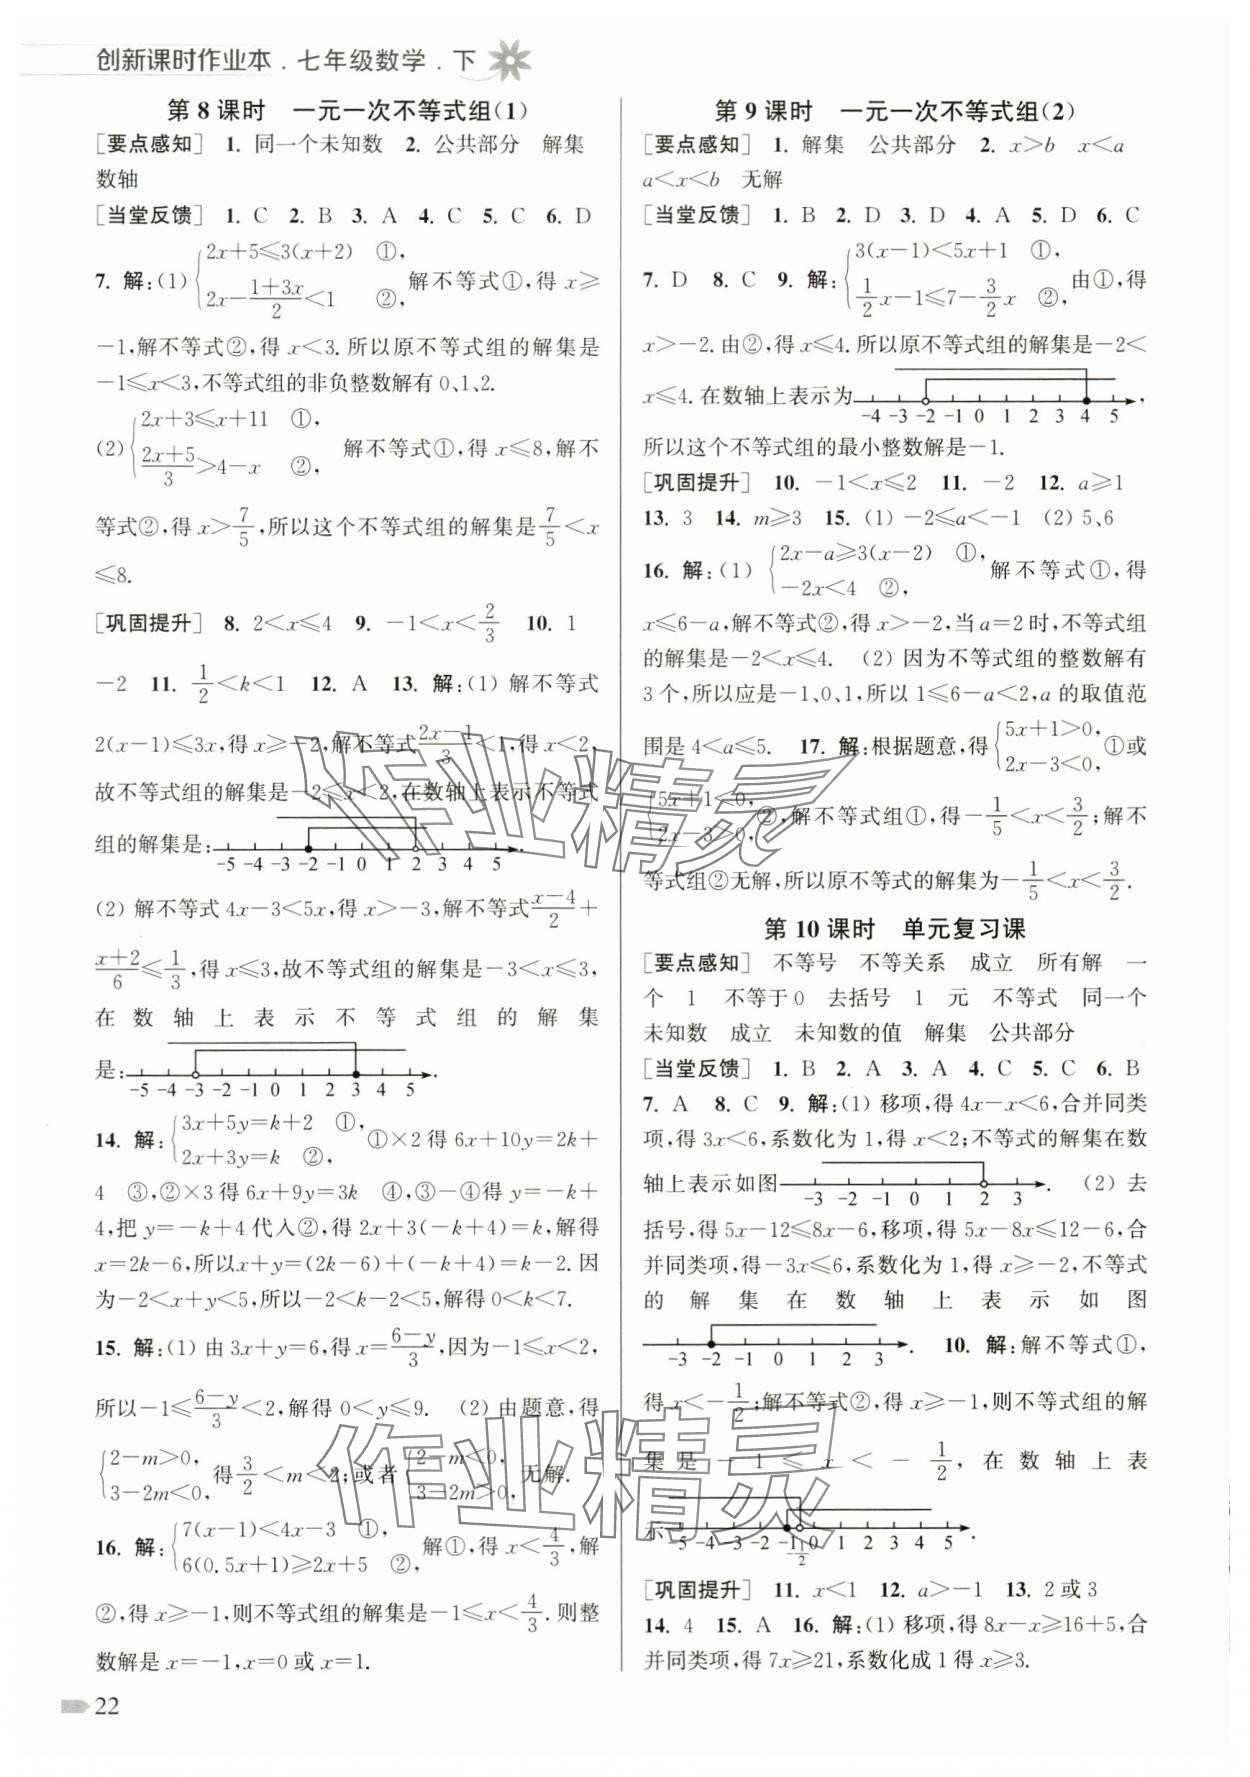 创新课时作业本．七年级数学．下
第8课时　一元一次不等式组(1)
[要点感知]　1. 同一个未知数　2. 公共部分　解集
数轴
[当堂反馈]　1. C　2. B　3. A　4. C　5. C　6. D
7. 解:(1) {2x+5≤3(x+2)　①, 2x−(1+3x)/2<1　②, 解不等式①,得 x≥
−1,解不等式②,得 x<3. 所以原不等式组的解集是
−1≤x<3,不等式组的非负整数解有 0、1、2.
(2) {2x+3≤x+11　①, (2x+5)/3>4−x　②, 解不等式①,得 x≤8,解不
等式②,得 x>7/5,所以这个不等式组的解集是7/5<x
≤8.
[巩固提升]　8. 2<x≤4　9. −1<x<2/3　10. 1
−2　11. 1/2<k<1　12. A　13. 解:(1) 解不等式
2(x−1)≤3x,得 x≥−2,解不等式(2x−1)/3<1,得 x<2,
故不等式组的解集是−2≤x<2,在数轴上表示不等式
组的解集是: −5 −4 −3 −2 −1 0 1 2 3 4 5 .
(2) 解不等式 4x−3<5x,得 x>−3,解不等式(x−4)/2+
(x+2)/6≤1/3,得 x≤3,故不等式组的解集是−3<x≤3,
在数轴上表示不等式组的解集
是: −5 −4 −3 −2 −1 0 1 2 3 4 5 .
14. 解: {3x+5y=k+2　①, 2x+3y=k　②, ①×2 得 6x+10y=2k+
4　③,②×3 得 6x+9y=3k　④,③−④得 y=−k+
4,把 y=−k+4 代入②,得 2x+3(−k+4)=k,解得
x=2k−6,所以x+y=(2k−6)+(−k+4)=k−2. 因
为−2<x+y<5,所以−2<k−2<5,解得 0<k<7.
15. 解:(1) 由 3x+y=6,得 x=(6−y)/3,因为−1≤x<2,
所以−1≤(6−y)/3<2,解得 0<y≤9.　(2) 由题意,得
{2−m>0, 3−2m<0, 得3/2<m<2;或者{2−m<0, 3−2m>0, 无解.
16. 解: {7(x−1)<4x−3　①, 6(0.5x+1)≥2x+5　②, 解①,得 x<4/3,解
②,得 x≥−1,则不等式组的解集是−1≤x<4/3. 则整
数解是 x=−1,x=0 或 x=1.
22
第9课时　一元一次不等式组(2)
[要点感知]　1. 解集　公共部分　2. x>b　x<a
a<x<b　无解
[当堂反馈]　1. B　2. D　3. D　4. A　5. D　6. C
7. D　8. C　9. 解: {3(x−1)<5x+1　①, 1/2x−1≤7−3/2x　②, 由①,得
x>−2. 由②,得 x≤4. 所以原不等式组的解集是−2<
x≤4. 在数轴上表示为 −4 −3 −2 −1 0 1 2 3 4 5 ,
所以这个不等式组的最小整数解是−1.
[巩固提升]　10. −1<x≤2　11. −2　12. a≥1
13. 3　14. m≥3　15. (1) −2≤a<−1　(2) 5、6
16. 解:(1) {2x−a≥3(x−2)　①, −2x<4　②, 解不等式①,得
x≤6−a,解不等式②,得 x>−2,当 a=2 时,不等式组
的解集是−2<x≤4.　(2) 因为不等式组的整数解有
3 个,所以应是−1、0、1,所以 1≤6−a<2,a 的取值范
围是 4<a≤5.　17. 解:根据题意,得{5x+1>0, 2x−3<0, ①或
{5x+1<0, 2x−3>0, ②,解不等式组①,得−1/5<x<3/2;解不
等式组②无解,所以原不等式的解集为−1/5<x<3/2.
第10课时　单元复习课
[要点感知]　不等号　不等关系　成立　所有解　一
个　1　不等于0　去括号　1　元　不等式　同一个
未知数　成立　未知数的值　解集　公共部分
[当堂反馈]　1. B　2. A　3. A　4. C　5. C　6. B
7. A　8. C　9. 解:(1) 移项,得 4x−x<6,合并同类
项,得 3x<6,系数化为 1,得 x<2;不等式的解集在数
轴上表示如图 −3 −2 −1 0 1 2 3 .　(2) 去
括号,得 5x−12≤8x−6,移项,得 5x−8x≤12−6,合
并同类项,得−3x≤6,系数化为 1,得 x≥−2,不等式
的解集在数轴上表示如图
−3 −2 −1 0 1 2 3 .　10. 解:解不等式①,
得 x<−1/2;解不等式②,得 x≥−1,则不等式组的解
集是−1≤x<−1/2,在数轴上表
示 −5 −4 −3 −2 −1 −1/2 0 1 2 3 4 5 .
[巩固提升]　11. x<1　12. a>−1　13. 2 或 3
14. 4　15. A　16. 解:(1) 移项,得 8x−x≥16+5,合
并同类项,得 7x≥21,系数化成 1 得 x≥3.
作业精灵
作业精灵